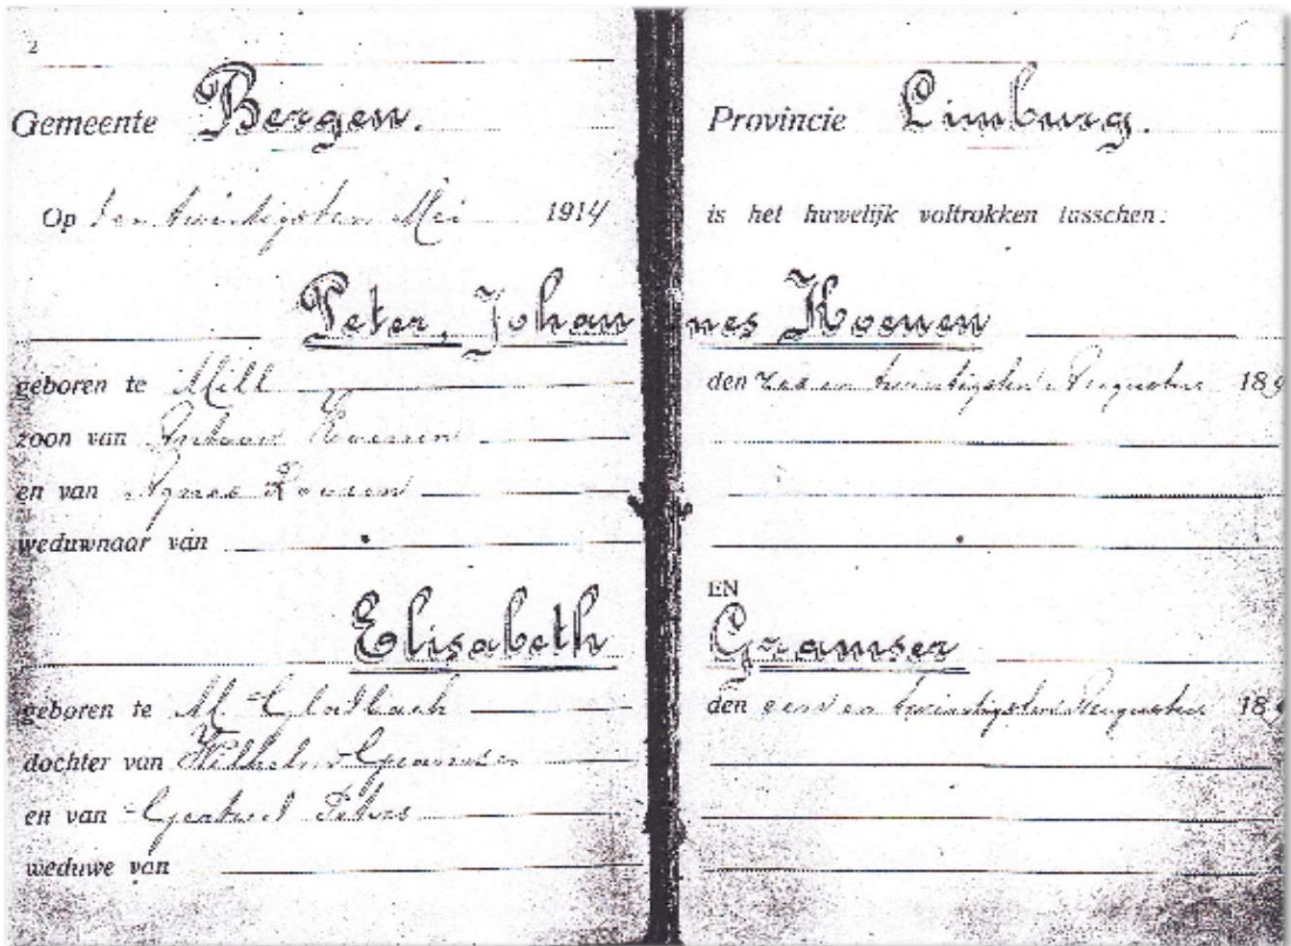 2
Gemeente Bergen. Provincie Limburg.
Op den twintigsten Mei 1914 is het huwelijk voltrokken tusschen:
Peter, Johannes Koenen
geboren te Mill den zes en twintigsten Augustus 189
zoon van Koenen
en van Agnes
weduwnaar van
EN
Elisabeth Gramser
geboren te M-Gladbach den een en twintigsten Augustus 18
dochter van Wilhelm Gramser
en van Gertrud Peters
weduwe van